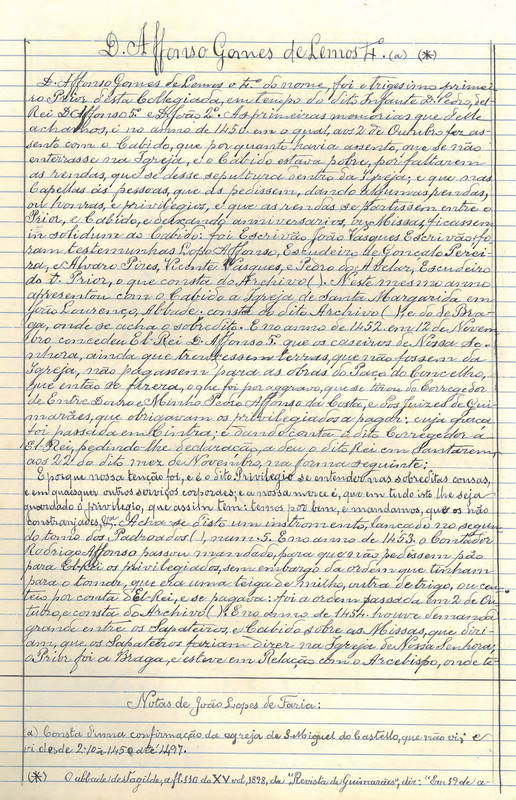 D. Affonso Gomes de Lemos 4º. (a) (*)
D. Affonso Gomes de Lemos o 4º do nome, foi o trigesimo primei-
ro Prior desta Collegiada, em tempo do dito Infante D. Pedro, del-
Rei D. Affonso 5º e D. João 2º. As primeiras memorias que delle
achamos, é no anno de 1450 em o qual, aos 2 de Outubro foi as-
sento com o Cabido, que por quanto havia assento, que se não
enterrasse na Igreja, e o Cabido estava pobre, por faltarem
as rendas, que se desse sepultura dentro da Igreja; e que nas
Capellas ás pessoas, que as pedissem, dando algumas rendas,
ou honras, e privilegios, e que as rendas se partissem entre o
Prior, e Cabido, e deixando anniversarios, ou Missas, ficassem
in solidum ao Cabido: foi Escrivão João Vasques Escrivão: fo-
ram testemunhas Lopo Affonso, Escudeiro de Gonçalo Perei-
ra, e Alvaro Pires, Vicente Vasques, e Pedro do Avelar, Escudeiro
do d. Prior, o que consta do Archivo ( ). Neste mesmo anno
apresentou com o Cabido a Igreja de Santa Margarida em
João Lourenço, Abbade: consta do dito Archivo ( ), e do de Bra-
ga, onde se acha o sobredito. E no anno de 1452 em 12 de Novem-
bro concedeu El-Rei D. Affonso 5º que os caseiros de Nossa Se-
nhora, ainda que trouxessem terras, que não fossem da
Igreja, não pagassem para as obras do Paço do Concelho,
que então se fizera, o que foi por aggravo, que se tirou do Corregedor
de Entre Douro e Minho Pedro Affonso da Costa, e dos Juizes de Gui-
marães, que obrigavam os privilegiados a pagar; cuja graça
foi passada em Cintra; e dando conta o dito Corregedor a
El-Rei, pedindo-lhe declaração, a deu o dito Rei em Santarem,
aos 22 do dito mez de Novembro, na forma seguinte:
E porque nossa tenção foi, e é o dito Privilegio se entender nas sobreditas cousas,
e em quaesquer outros serviços corporaes; e a nossa mercê é, que em tudo isto lhe seja
guardado o privilegio, que assim tem: temos por bem, e mandamos, que os não
constranjades, etc. Acha-se disto um instromento, lançado no segun-
do tomo dos Padroados ( ), num. 5. E no anno de 1453, o Contador
Rodrigo Affonso passou mandado, para que não pedissem pão
para El-Rei os privilegiados, sem embargo da ordem que tinham
para o tomar, que era uma teiga de milho, outra de trigo, ou cen-
teio por conta d'El-Rei, e se pagava: foi a ordem passada em 2 de Ou-
tubro, e consta do Archivo ( ). E no anno de 1454 houve demanda
grande entre os Sapateiros, e Cabido sobre as Missas, que dizi-
am, que os Sapateiros faziam dizer na Igreja de Nossa Senhora;
o Prior foi a Braga, e esteve em Relação com o Arcebispo, onde te-
Notas de João Lopes de Faria:
a) Consta d'uma confirmação da egreja de S. Miguel do Castello, que não vi; e
vi desde 2-10-1450 até 1497.
(*) O abbade de Tagilde, a fl. 110 do XV vol, 1898, da "Revista de Guimarães", diz: "Em 19 de a-